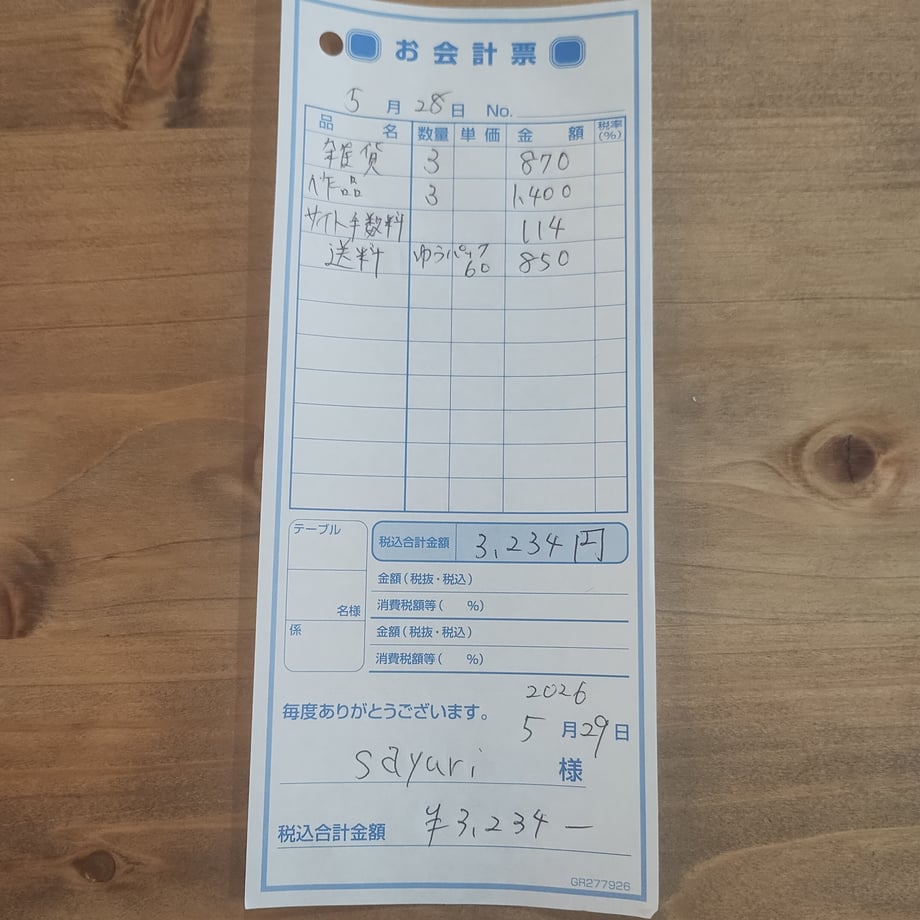 お会計票
5月28日 No.
品名 数量 単価 金額 税率(%)
雑貨 3 870
作品 3 1,400
サイト手数料 114
送料 ゆうパック60 850
テーブル
税込合計金額 3,234円
金額(税抜・税込)
名様
消費税額等( %)
係
金額(税抜・税込)
消費税額等( %)
2026
毎度ありがとうございます。 5月29日
sayuri 様
税込合計金額 ¥3,234ー
GR277926